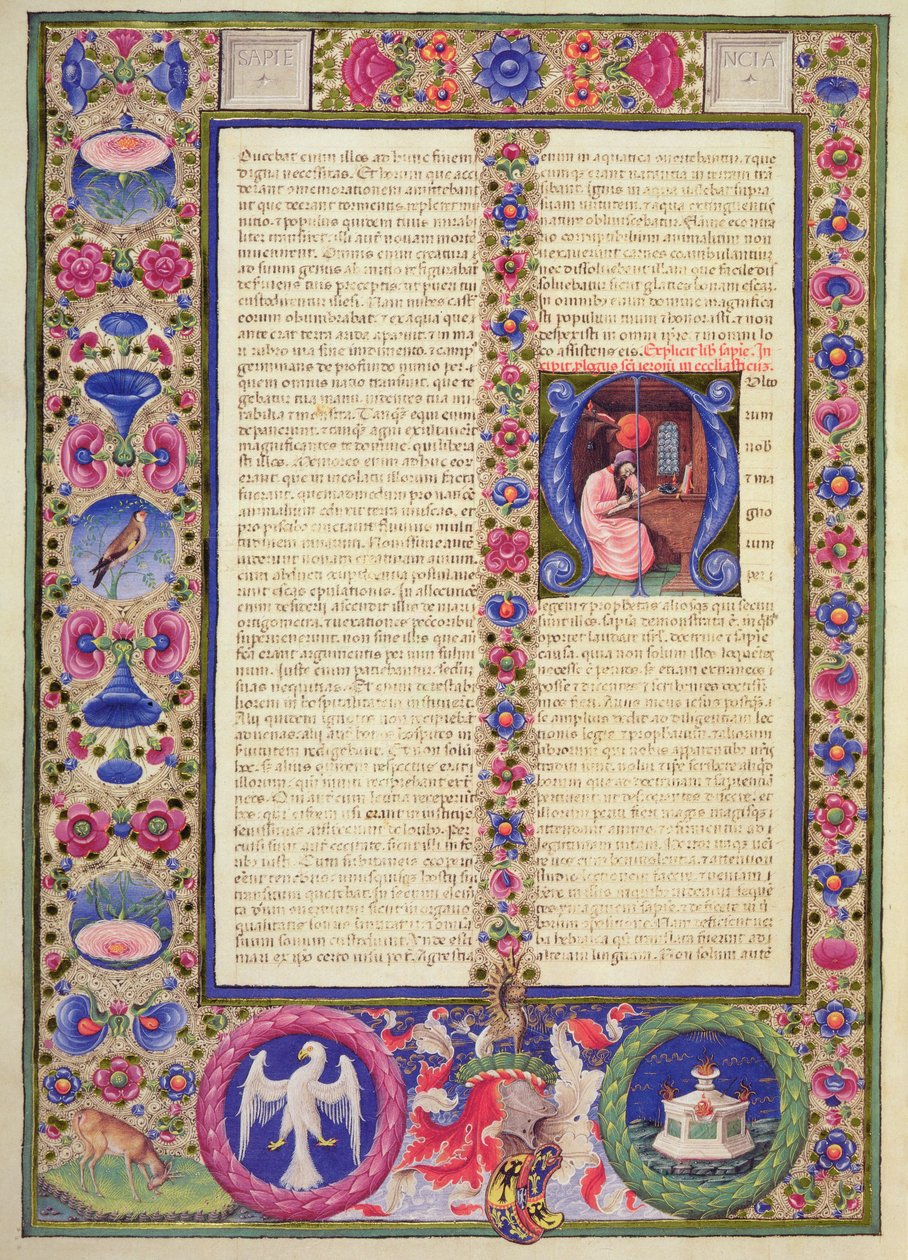 SAPIE
NCIA
Ducebat enim illos ad hunc finem
digna necessitas. Et horum que acci
derant commemorationem amittebant
ut que deerant tormentis repleret puni
tio. et populus quidem tuus mirabi
liter transiret. illi aut novam morte
invenirent. Omnis enim creatura
ad suum genus ab initio refigurabat
deserviens tuis preceptis. ut pueri tui
custodirentur illesi. Nam nubes cast
eorum obumbrabat. et ex aqua que
ante erat terra arida aparuit. et in ma
ri rubro via sine impedimento. et camp
germinans de profundo nimio. per
quem omnis natio transivit. que te
gebatur tua manu videntes tua mi
rabilia et monstra. Tanq equi enim
depaverunt. et tanq agni exultaverunt
magnificantes te domine. qui libera
sti illos. Memores enim adhuc
erant. que in incolatu illorum facta
fuerant. quemadmodum pro natione
animalium eduxit terra muscas. et
pro piscibo eructavit fluvius multi
tudinem ranarum. Novissime
viderunt novam creaturam avium
cum abducti concupiscentia postulave
runt escas epulationis. In allocutione
enim desiderii ascendit illis de mari
ortigometra. et vexationes peccatoribus
supervenerunt. non sine illis que an
facta erant argumentis per vim fulmi
num. Juste enim patiebantur. secundum
suas nequitias. Et enim detestabi
liorem inhospitalitatem instituerunt
Alii quidem ignotos non recipiebant
advenas. alii aut bonos hospites in
servitutem redigebant. Et non solum
hec. sed alius quidem respectus erat
illorum. qui inviti recipiebant extra
neos. Qui aut cum letitia receperunt
hos. qui eisdem usi erant iusticiis
sevissimis afflixerunt doloribus. Per
cussi sunt aut cecitate. sicut illi in fo
ribus iusti. Cum subitaneis cooperti
essent tenebris. unusquisque hostii sui
transitum querebat. In se enim elem
ta dum convertuntur sicut in organo
qualitatis sonus inmutatur. et omnia
suum sonum custodiunt. Unde esti
mari ex ipo certo visu pot. Agrestia
enim in aquatica convertebantur. et que
cumque erant natantia in terram transi
ibant. Ignis in aqua valebat supra
suam virtutem. et aqua extinguentis
nature obliviscebatur. Flamme econtra
rio corruptibilium animalium non
vexaverunt carnes coambulantium
nec dissolvebant illam que facile dis
solvebatur sicut glacies bonam escam.
In omnibus enim domine magnifica
sti populum tuum et honorasti. et non
despexisti in omni tpre. et in omni lo
co assistens eis. Explicit lib sapie. In
cipit plogus sci ieroni in ecclesiasticuz.
Ulto
rum
nob
et ma
gno
rum
per
legem et prophetas aliosqs qui secuti
sunt illos. sapia demonstrata e. in qibs
oportet laudare isrl. doctrine et sapie
causa. quia non solum illos loquetes
necesse e peritos. sed etiam extraneos
posse et dicentes et scribentes doctissi
mos fieri. Avus meus iesus postqz
se amplius dedit ad diligentiam lec
tionis legis et prophetarum. et aliorum
librorum qui nobis a parentibo nris
traditi sunt. voluit et ipse scribere aliqd
horum que ad doctrinam et sapientiam
pertinent. ut desiderantes discere. et
illorum periti facti magis magisqs
attendant animo. et confirmentur ad
legitimam vitam. Hortor itaqs veni
re vos cum benivolentia. et attentiori
studio lectionem facere. et veniam
habere in illis. in quibo videmur seque
tes ymaginem sapie. et deficere in v
borum compositione. Nam deficiunt ver
ba hebraica qn translata fuerint ad
alteram linguam. Non solum aute